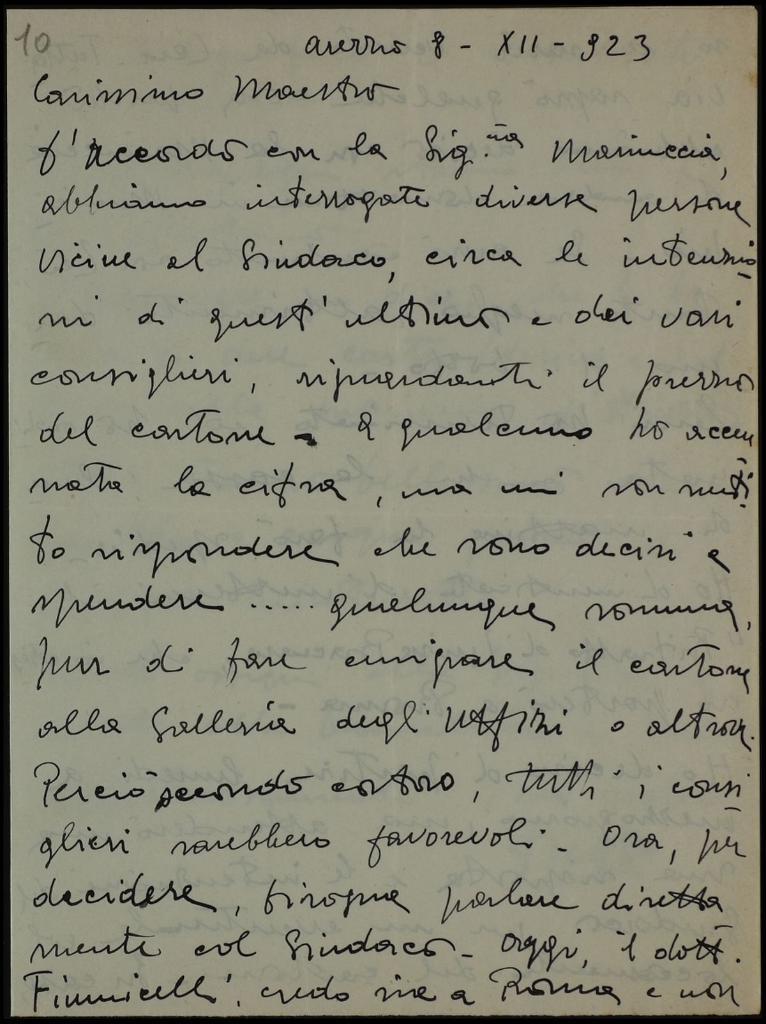 10
Arezzo 8 - XII - 923
Carissimo Maestro
D'accordo con la Sig.ina Mariuccia,
abbiamo interrogate diverse persone
vicine al Sindaco, circa le intenzio
ni di quest'ultimo e dei vari
consiglieri, riguardanti il prezzo
del cartone - A qualcuno ho accen
nata la cifra, ma mi son senti
to rispondere che sono decisi a
spendere ..... qualunque somma,
pur di fare emigrare il cartone
alla Galleria degli Uffizi o altrove.
Perciò secondo costoro, tutti i consi
glieri sarebbero favorevoli - Ora, per
decidere, bisogna parlare diretta
mente col Sindaco - Oggi, il dott.
Fiumicelli, credo sia a Roma e non